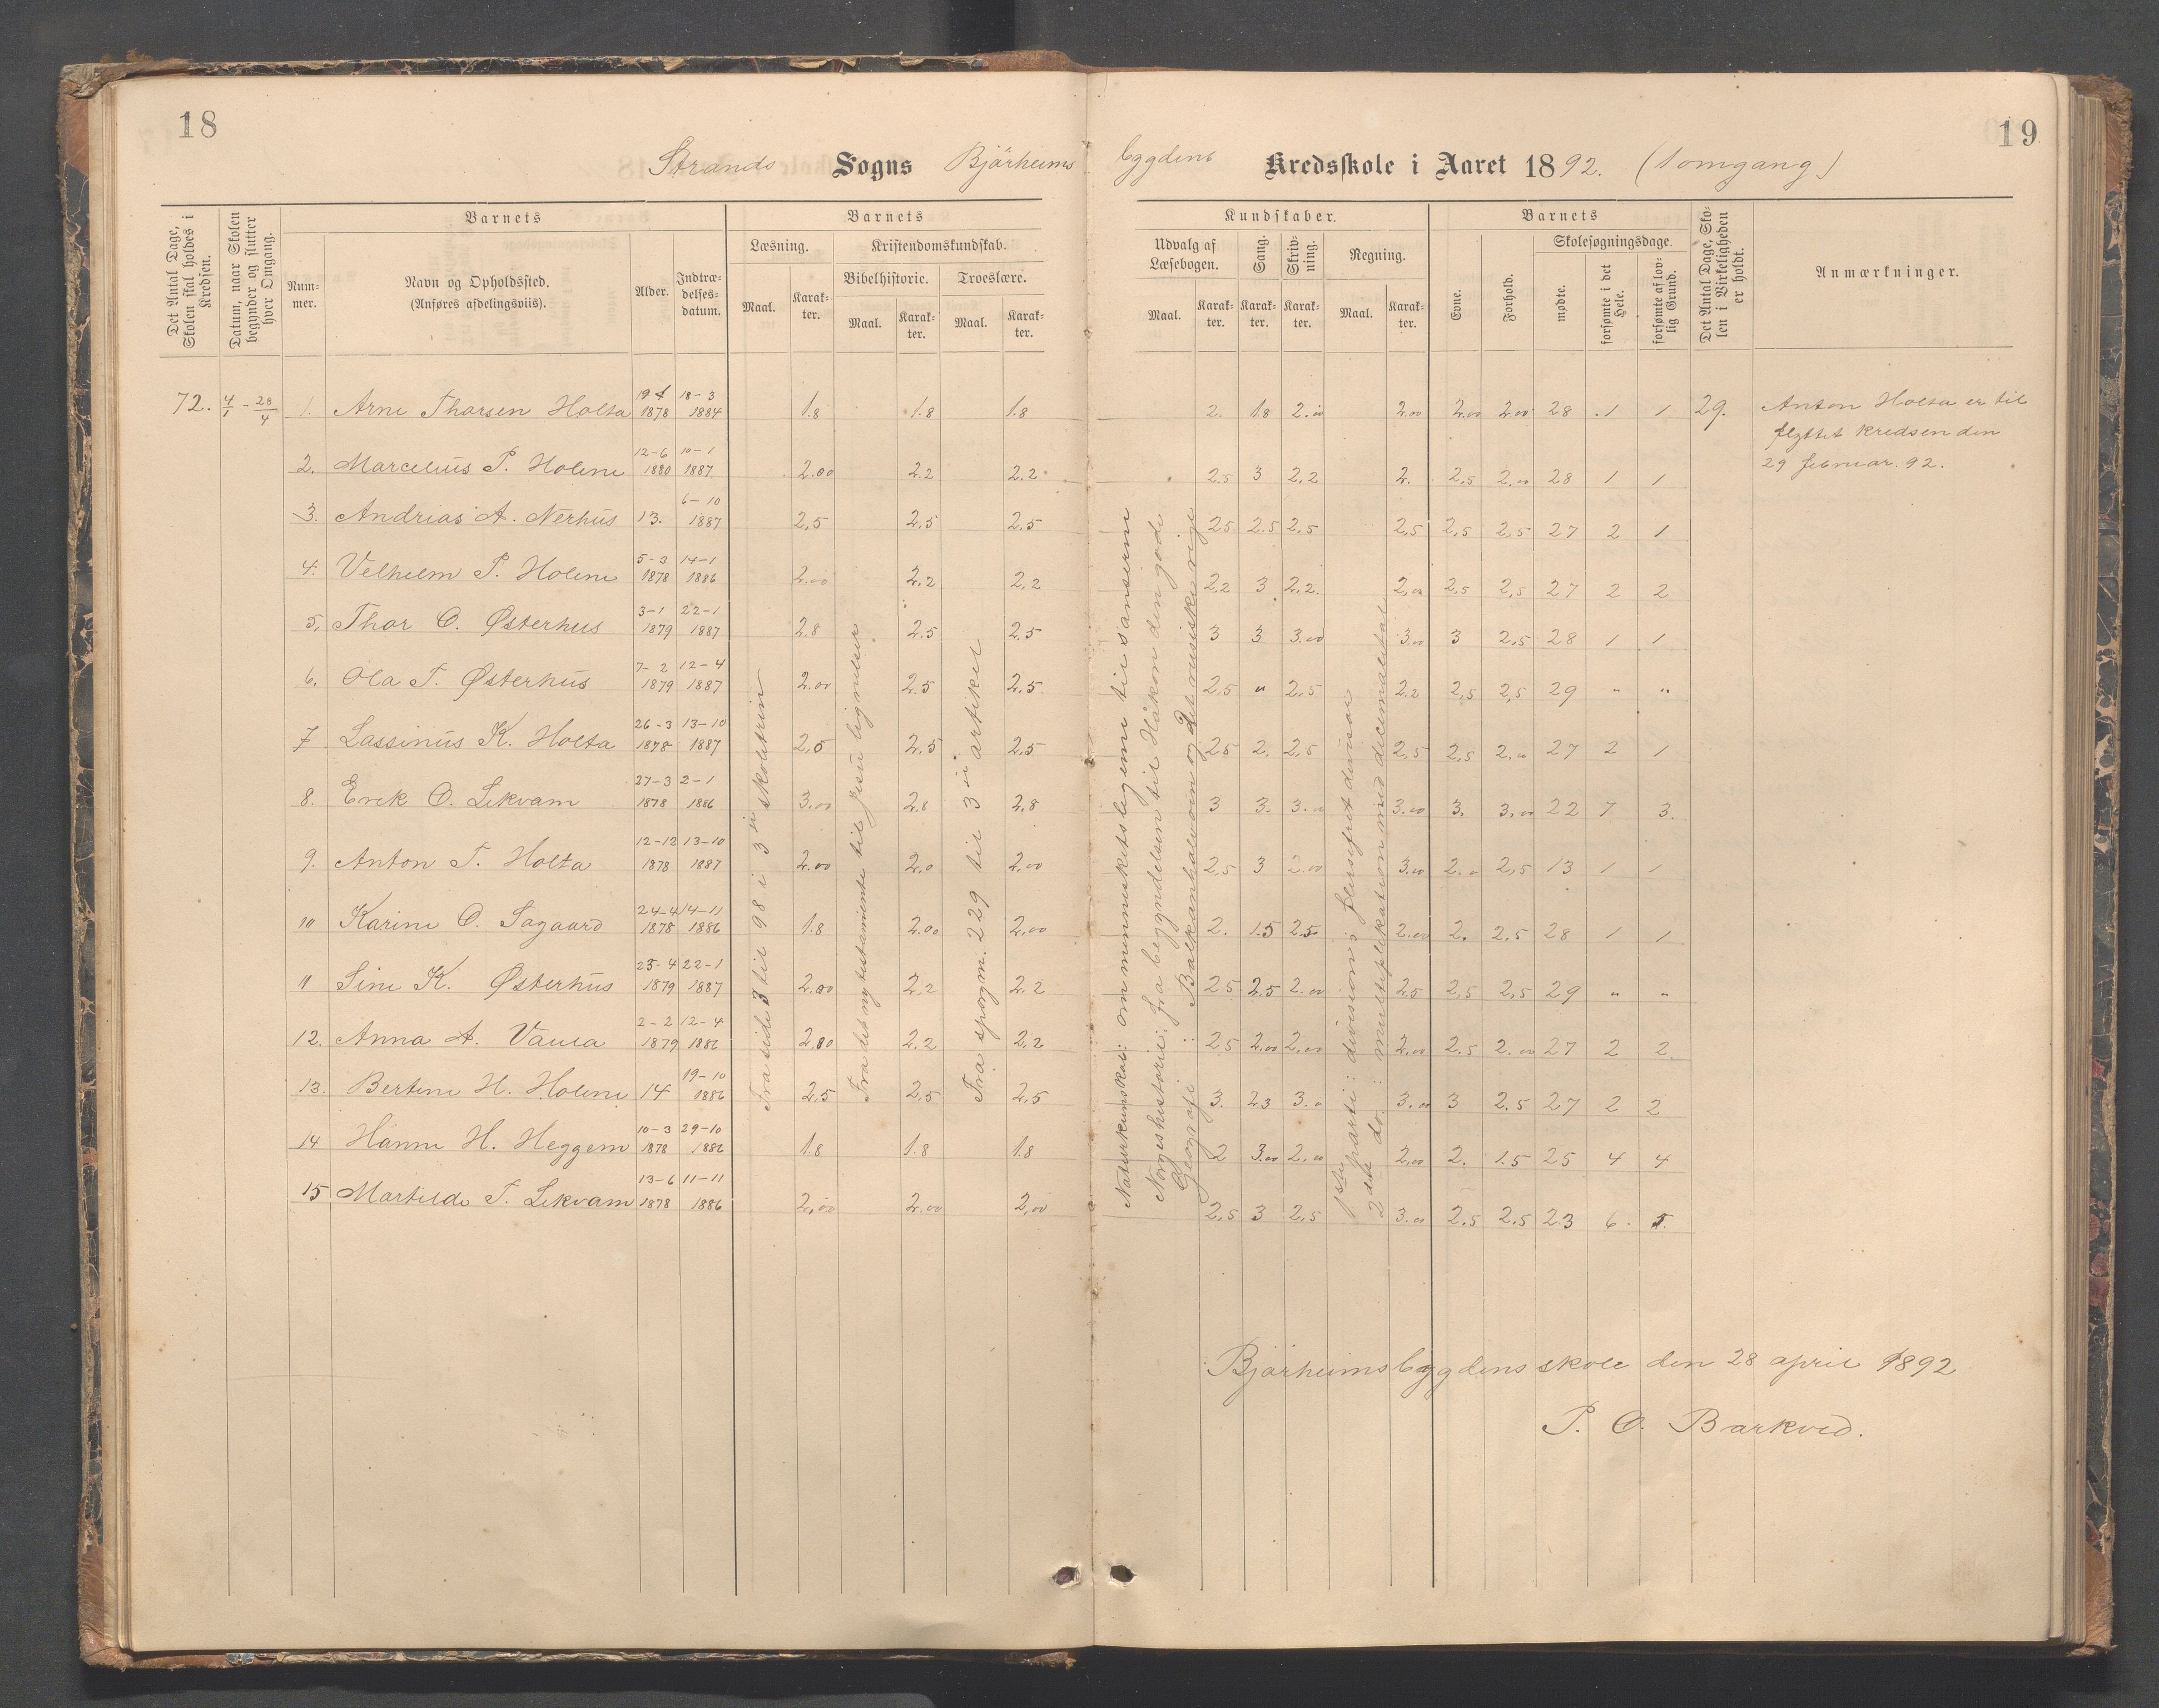 18
19
Strands Sogns Bjärheims bygdens Kredsskole i Aaret 1892. (1 omgang)
Det Antal Dage, Skolen skal holdes i Kredsen.
Datum, naar Skolen begynder og slutter hver Omgang.
Barnets
Num- mer.
Navn og Opholdssted.
(Anføres afdelingsviis).
Alder.
Indtræ- delses- datum.
Barnets
Læsning.
Maal.
Karak- ter.
Kristendomskundskab.
Bibelhistorie.
Maal.
Karak- ter.
Troeslære.
Maal.
Karak- ter.
Kundskaber.
Udvalg af Læsebogen.
Maal.
Karak- ter.
Sang.
Karak- ter.
Skriv- ning.
Karak- ter.
Regning.
Maal.
Karak- ter.
Barnets
Evne.
Forhold.
Skolesøgningsdage.
mødte.
forsømte i det Hele.
forsømte af lov- lig Grund.
Det Antal Dage, Sko- len i Virkeligheden er holdt.
Anmærkninger.
72. 4/1 - 28/4 1. Arne Tharsen Holta 1878 18-3 1884 1.8 1.8 1.8 2. 1.8 2.00 2.00 2.00 2.00 28 1 1 29.
2. Marcelius P. Holene 12-6 1880 10-1 1887 2.00 2.2 2.2 2.5 3 2.2 2. 2,5 2.00 28 1 1
3. Andrias A. Nerhus 13. 6-10 1887 2,5 2.5 2.5 2.5 2.5 2.5 2,5 2,5 2,5 27 2 1
4. Velhelm P. Holene 5-3 1878 14-1 1886 2.00 2.2 2,2 2,2 3 2.2. 2,00 2,5 2,5 27 2 2
5. Thor O. Østerhus 3-1 1879 22-1 1887 2.8 2.5 2.5 3 3 3.00 3.00 3 2,5 28 1 1
6. Ola T. Østerhus 7-2 1879 12-4 1887 2.00 2.5 2,5 2,5 " 2,5 2.2 2,5 2,5 29 " "
7 Lassinus K. Holta 26-3 1878 13-10 1887 2,5 2,5 2.5 2.5 2. 2,5 2,5 2,5 2.00 27 2 1
8. Erek O. Lekvam 27-3 1878 2-1 1886 3.00 2.8 2,8 3 3. 3.00 3.00 3. 3,00 22 7 3.
9. Anton T. Holta 12-12 1878 13-10 1887 2.00 2.0 2,00 2,5 3 2.00 3.00 2.00 2,5 13 1 1
10 Karine O. Sagaard 24-4 1878 14-11 1886 1.8 2.00 2,00 2. 1.5 2.5 2.00 2. 2,5 28 1 1
11 Sine K. Østerhus 23-4 1879 22-1 1887 2.00 2.2 2.2 2.5 2.5 2.00 2.5 2,5 2,5 29 " "
12. Anna A. Vaula 2-2 1879 12-4 1886 2.00 2.2 2.2 2.5 2.00 2.00 2.00 2.5 2.00 27 2 2.
13. Bertine H. Holene 14 19-10 1886 2,5 2,5 2,5 3. 2.3 3.0 3.00 3 2.5 27 2 2
14 Hanne H. Heggem 10-3 1878 29-10 1886 1.8 1.8 1.8 2 3.00 2.00 2,00 2. 1.5 25 4 4
15 Martilde T. Lekvam 13-6 1878 11-11 1886 2,00 2.00 2,00 2,5 3 2,5 3.00 2.5 2.5 23 6. 5.
Fra side 3 til 98 i 3 die skoletrin
Fra det ny testamente til Jesu lignelser.
Fra spørgm. 229 til 3 die artikel
Naturkunskab: om menneskets legeme til sanserne
Norges historie: fra begyndelsen til Håkon den gode
Geografi: Balkanhalvøen og det russiske rige
1ste parti: division; flersifret divisor
2det do.: multiplikation med decimaltal
Anton Holta er til
flyttet kredsen den
29 februar. 92.
Bjärheimsbygdens skole den 28 april 1892
P. O. Barkved.